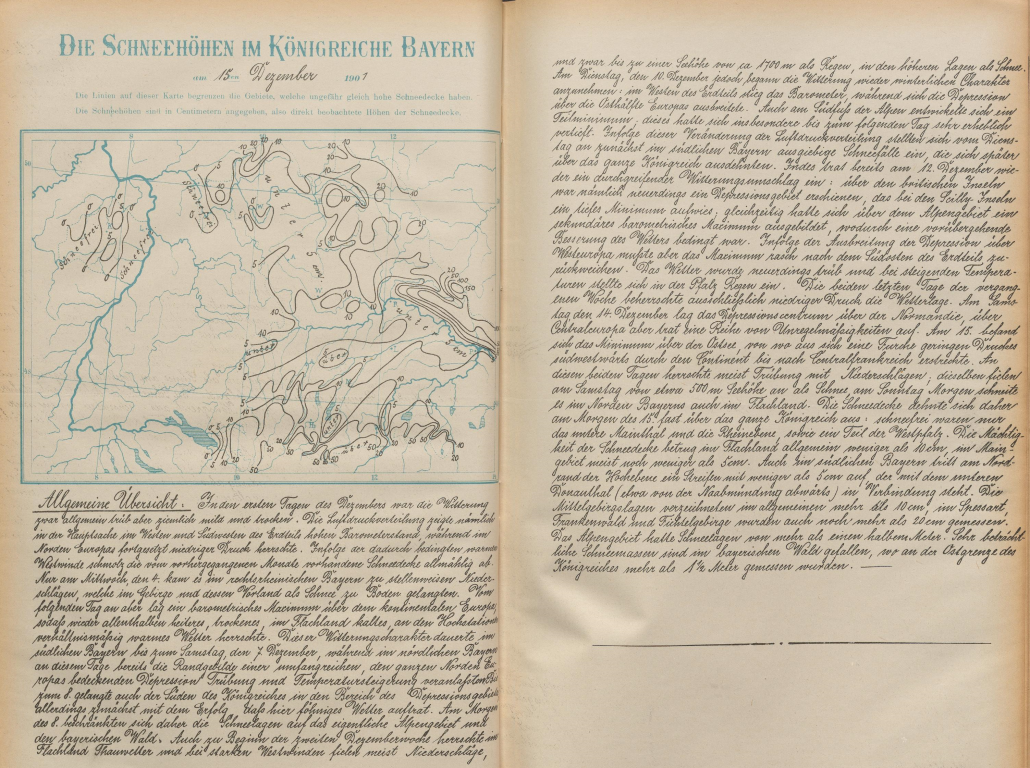 DIE SCHNEEHÖHEN IM KÖNIGREICHE BAYERN
am 15ten Dezember 1901
Die Linien auf dieser Karte begrenzen die Gebiete, welche ungefähr gleich hohe Schneedecke haben.
Die Schneehöhen sind in Centimetern angegeben, also direkt beobachtete Höhen der Schneedecke.
Schneefrei
Schneefrei
Schneefrei
unter
5 cm
unter
5 cm
unter
über
unter
über 50
Allgemeine Übersicht. In den ersten Tagen des Dezembers war die Witterung
zwar allgemein trüb aber ziemlich mild und trocken. Die Luftdruckverteilung zeigte nämlich
in der Hauptsache im Westen und Südwesten des Erdteils hohen Barometerstand, während im
Norden Europas fortgesetzt niedriger Druck herrschte. Infolge der dadurch bedingten warmen
Westwinde schmolz die vom vorhergegangenen Monate vorhandene Schneedecke allmählig ab.
Nur am Mittwoch, den 4. kam es im rechtsrheinischen Bayern zu stellenweisen Nieder-
schlägen, welche im Gebirge und dessen Vorland als Schnee zu Boden gelangten. Vom
folgenden Tag an aber lag ein barometrisches Maximum über dem kontinentalen Europa,
sodaß wieder allenthalben heiteres, trockenes, im Flachland kaltes, an den Hochstationen
verhältnismäßig warmes Wetter herrschte. Dieser Witterungscharakter dauerte im
südlichen Bayern bis zum Samstag, den 7. Dezember, während im nördlichen Bayern
an diesem Tage bereits die Randgebilde einer umfangreichen, den ganzen Norden Eu-
ropas bedeckenden Depression Trübung und Temperatursteigerung veranlaßten. Bis
zum 8. gelangte auch der Süden des Königreiches in den Bereich des Depressionsgebiets
allerdings zunächst mit dem Erfolg, daß hier föhniges Wetter auftrat. Am Morgen
des 8. beschränkten sich daher die Schneelagen auf das eigentliche Alpengebiet und
den bayerischen Wald. Auch zu Beginn der zweiten Dezemberwoche herrschte im
Flachland Thauwetter und bei starken Westwinden fielen meist Niederschläge,
und zwar bis zu einer Seehöhe von ca 1700 m als Regen, in den höheren Lagen als Schnee.
Am Dienstag, den 10. Dezember jedoch begann die Witterung wieder winterlichen Charakter
anzunehmen: im Westen des Erdteils stieg das Barometer, während sich die Depression
über die Osthälfte Europas ausbreitete. Auch am Südfuß der Alpen entwickelte sich ein
Teilminimum; dieses hatte sich insbesondere bis zum folgenden Tag sehr erheblich
vertieft. Infolge dieser Veränderung der Luftdruckverteilung stellten sich vom Diens-
tag an zunächst im südlichen Bayern ausgiebige Schneefälle ein, die sich später
über das ganze Königreich ausdehnten. Indes trat bereits am 12. Dezember wie-
der ein durchgreifender Witterungsumschlag ein: über den britischen Inseln
war nämlich neuerdings ein Depressionsgebiet erschienen, das bei den Scilly Inseln
ein tiefes Minimum aufwies; gleichzeitig hatte sich über dem Alpengebiet ein
sekundäres barometrisches Maximum ausgebildet, wodurch eine vorübergehende
Besserung des Wetters bedingt war. Infolge der Ausbreitung der Depression über
Westeuropa mußte aber das Maximum rasch nach dem Südosten des Erdteils zu-
rückweichen. Das Wetter wurde neuerdings trüb und bei steigenden Tempera-
turen stellte sich in der Pfalz Regen ein. Die beiden letzten Tage der vergang-
enen Woche beherrschte ausschließlich niedriger Druck die Wetterlage. Am Sams-
tag den 14. Dezember lag das Depressionscentrum über der Normandie, über
Centraleuropa aber trat eine Reihe von Unregelmäßigkeiten auf. Am 15. befand
sich das Minimum über der Ostsee, von wo aus sich eine Furche geringen Druckes
südwestwärts durch den Continent bis nach Centralfrankreich erstreckte. An
diesen beiden Tagen herrschte meist Trübung mit Niederschlägen; dieselben fielen
am Samstag von etwa 500 m Seehöhe an als Schnee, am Sonntag Morgen schneite
es im Norden Bayerns auch im Flachland. Die Schneedecke dehnte sich daher
am Morgen des 15. fast über das ganze Königreich aus: schneefrei waren nur
das untere Mainthal und die Rheinebene, sowie ein Teil der Westpfalz. Die Mächtig-
keit der Schneedecke betrug im Flachland allgemein weniger als 10 cm, im Main-
gebiet meist noch weniger als 5 cm. Auch im südlichen Bayern tritt am Nord-
rand der Hochebene ein Streifen mit weniger als 5 cm auf, der mit dem unteren
Donauthal (etwa von der Naabmündung abwärts) in Verbindung steht. Die
Mittelgebirgslagen verzeichneten im allgemeinen mehr als 10 cm; im Spessart,
Frankenwald und Fichtelgebirge wurden auch noch mehr als 20 cm gemessen.
Das Alpengebiet hatte Schneelagen von mehr als einem halben Meter. Sehr beträcht-
liche Schneemassen sind im bayerischen Wald gefallen, wo an der Ostgrenze des
Königreiches mehr als 1½ Meter gemessen wurden.